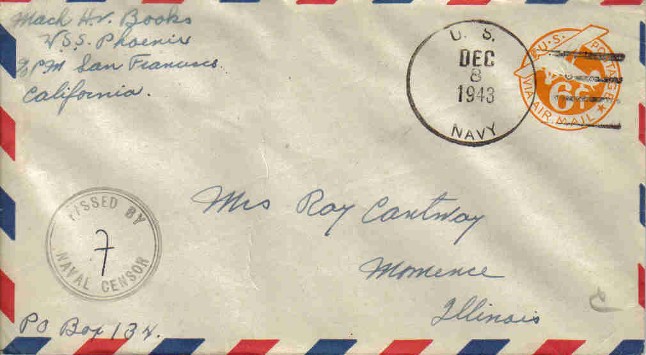 Mach Hr. Books
U.S.S. Phoenix
c/o PM San Francisco
California.
U. S.
DEC
8
1943
NAVY
U.S. POSTAGE
6¢
VIA AIR MAIL
PASSED BY
7
NAVAL CENSOR
Mrs Ray Cantway
Momence
Illinois
PO Box 134.